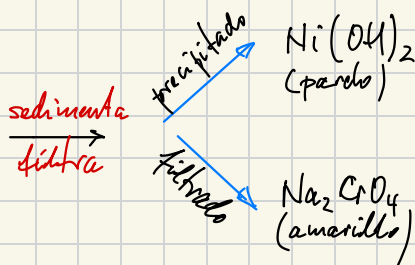 sedimenta
filtra
precipitado
Ni(OH)2
(pardo)
filtrado
Na2CrO4
(amarillo)